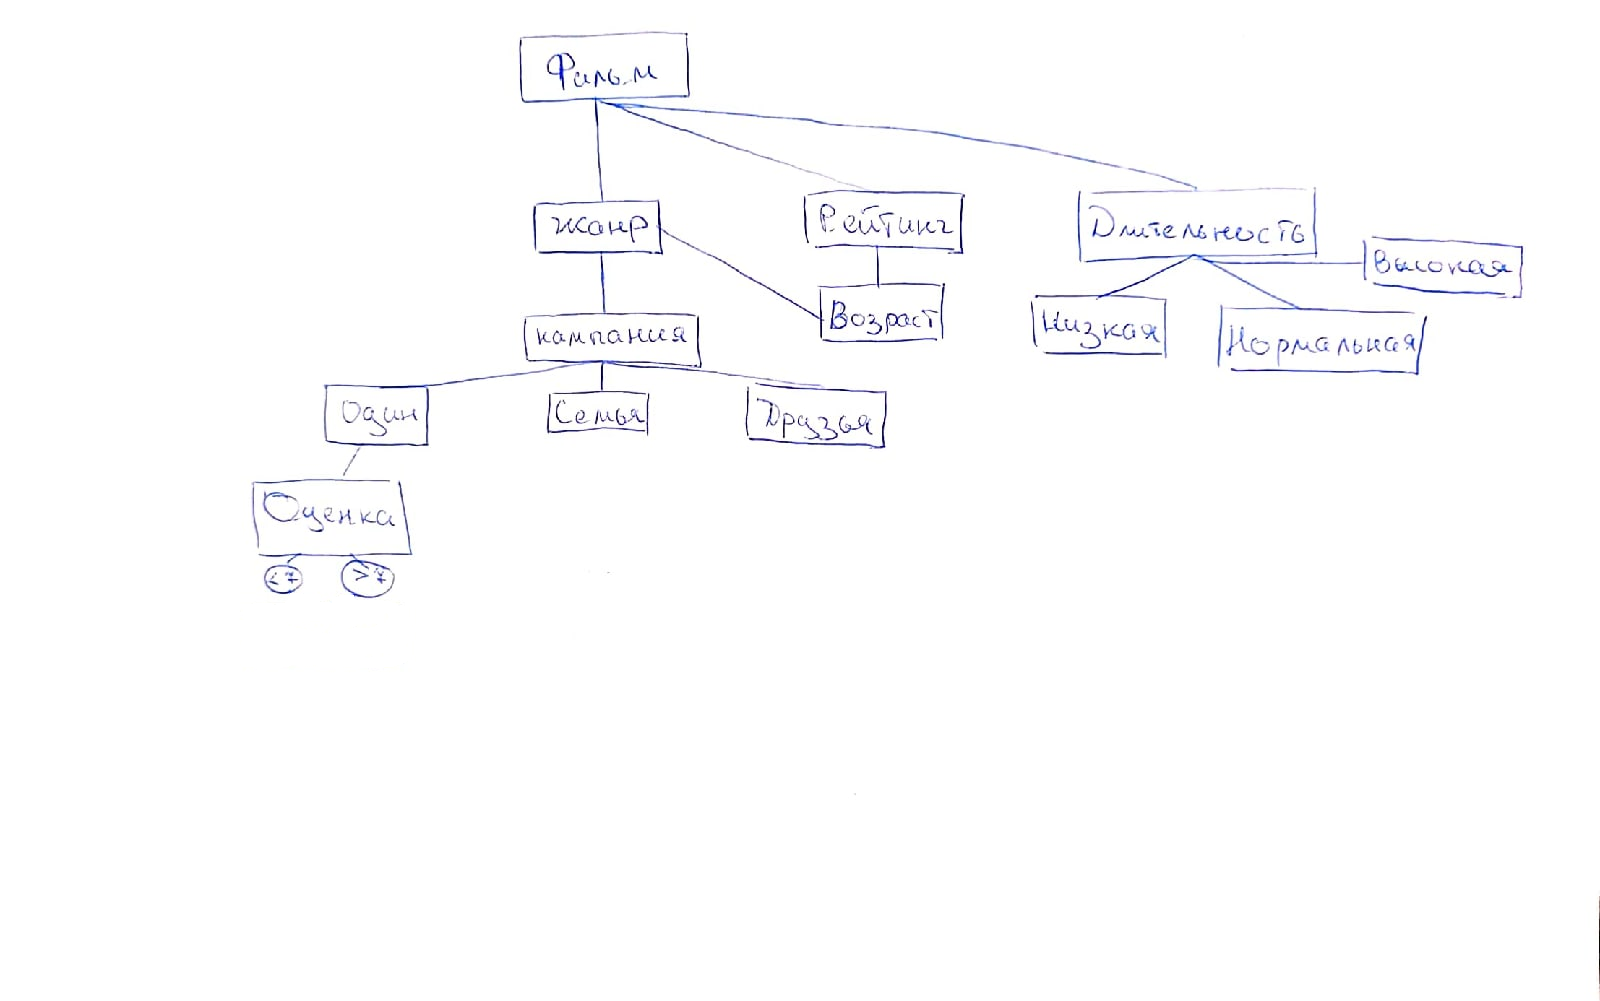 Фильм
Жанр
Рейтинг
Длительность
Высокая
Возраст
Низкая
Нормальная
кампания
Один
Семья
Друзья
Оценка
<7
>7